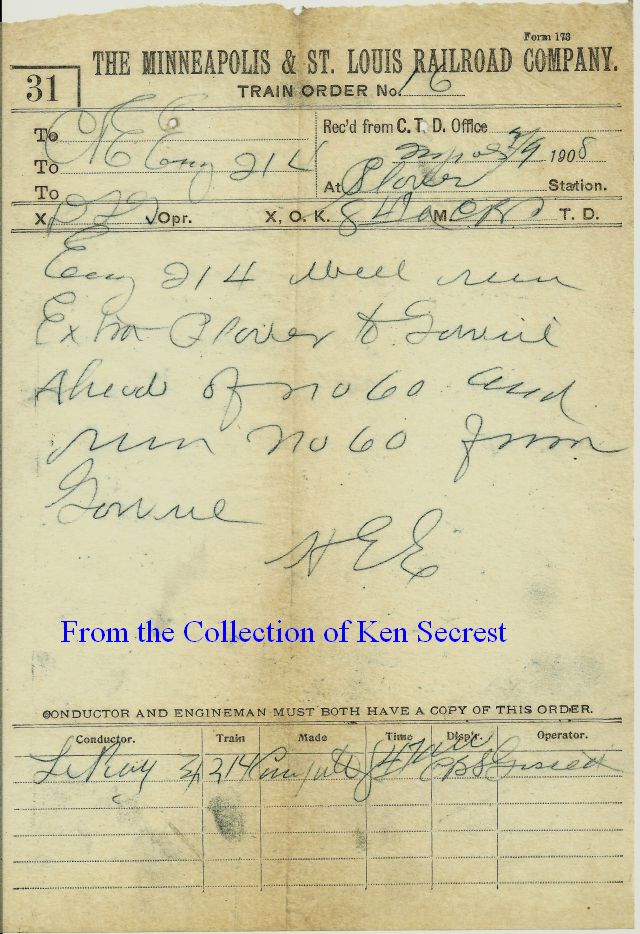 Form 173
THE MINNEAPOLIS & ST. LOUIS RAILROAD COMPANY.
31
TRAIN ORDER No. 16
To C&E Eng 214
To
To
Rec'd from C. T. D. Office
Mpols 2/9 1908
At Plover Station.
X, Opr. X, O. K. 840 A M T. D.
Eng 214 will run
Extra Plover to Gowrie
Ahead of no 60 and
run no 60 from
Gowrie
HEE
From the Collection of Ken Secrest
CONDUCTOR AND ENGINEMAN MUST BOTH HAVE A COPY OF THIS ORDER.
Conductor. Train Made Time Disp'r. Operator.
LeRoy 214 Complete